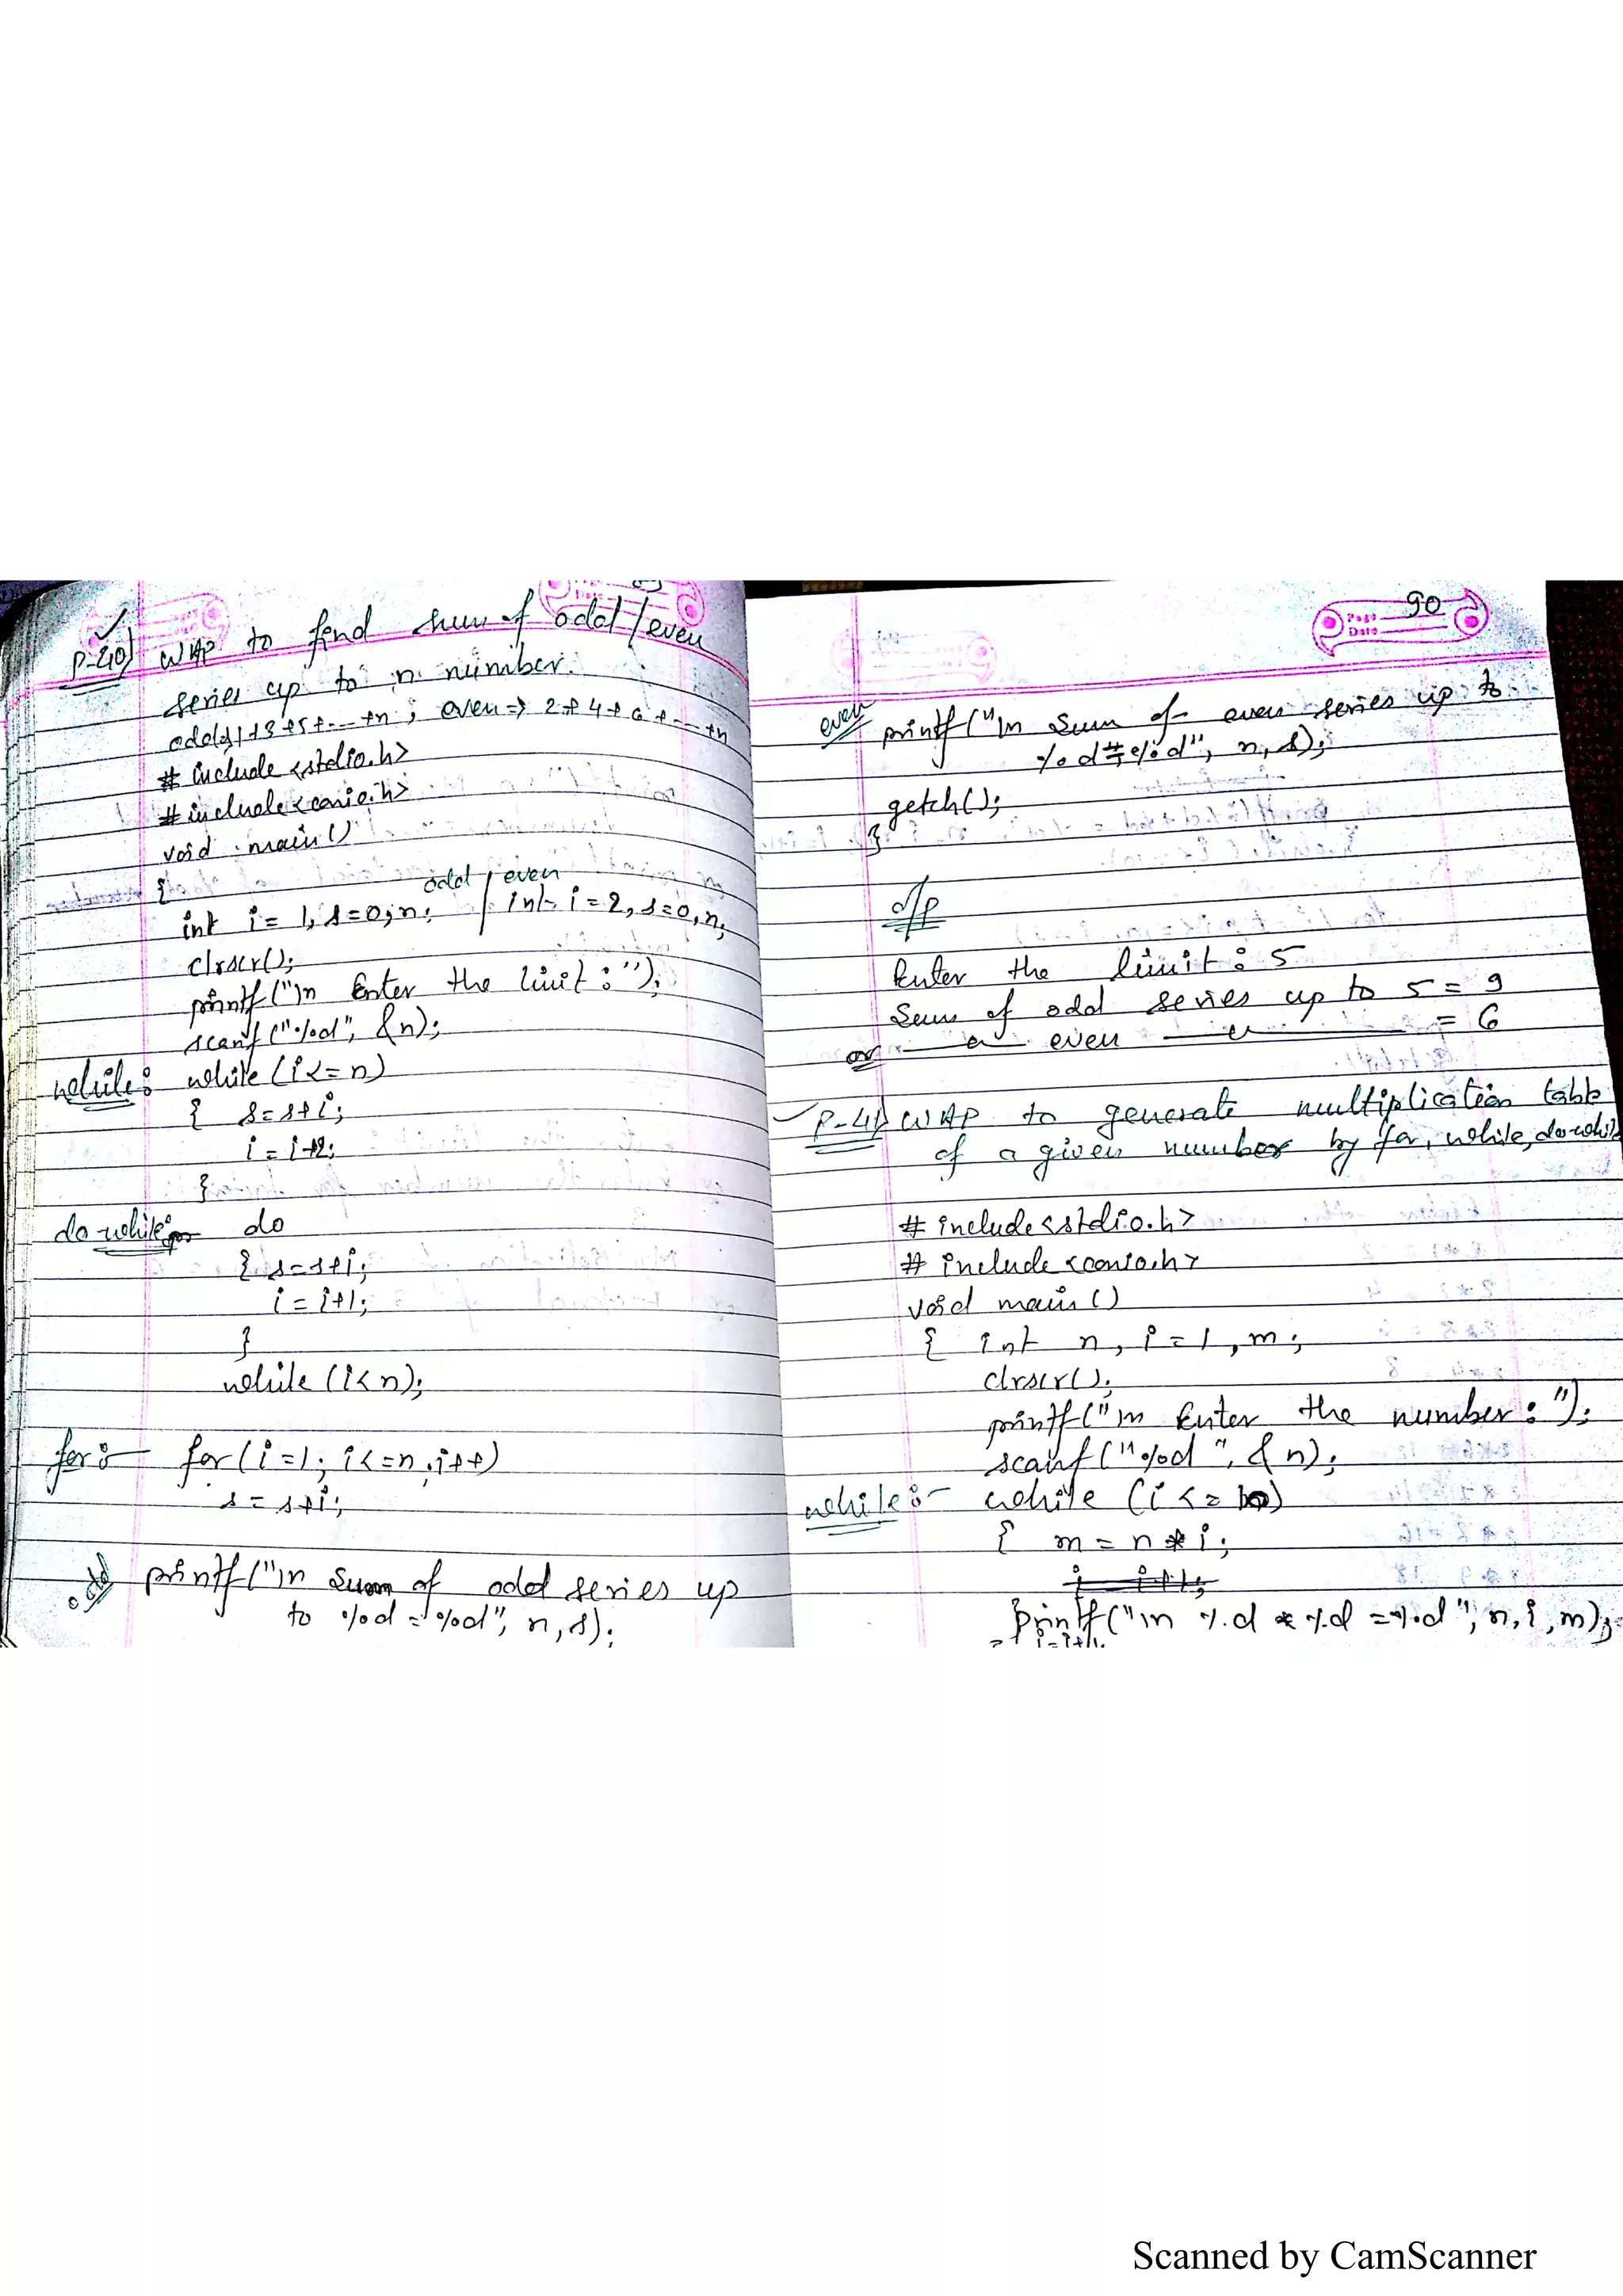 P-40) WAP to find sum of odd/even
series up to n number.
odd⇒1+3+5+---+n ; even⇒ 2+4+6+---+n
# include <stdio.h>
# include<conio.h>
void main()
{
odd / even
int i= 1, s=0, n; / int i=2, s=0, n;
clrscr();
printf("\n Enter the limit : ");
scanf("%d", &n);
while: while (i<=n)
{ s=s+i;
i = i+2;
}
do while:- do
{ s=s+i;
i = i+1;
}
while (i<n);
for:- for(i=1; i<=n; i++)
s = s+i;
odd printf("\n Sum of odd series up
to %d = %d", n, s);
Page 90
Date
even printf("\n Sum of even series up to
%d = %d", n, s);
getch();
}
o/p
Enter the limit : 5
Sum of odd series up to 5 = 9
or —— " —— even —— " —— = 6
P-41) WAP to generate multiplication table
of a given number by for, while, do while
# include<stdio.h>
# include <conio.h>
void main()
{ int n, i=1, m;
clrscr();
printf("\n Enter the number : ");
scanf("%d", &n);
while:- while (i <= 10)
{ m = n * i;
i = i+1;
printf("\n %d * %d = %d", n, i, m);
i=i+1;
Scanned by CamScanner